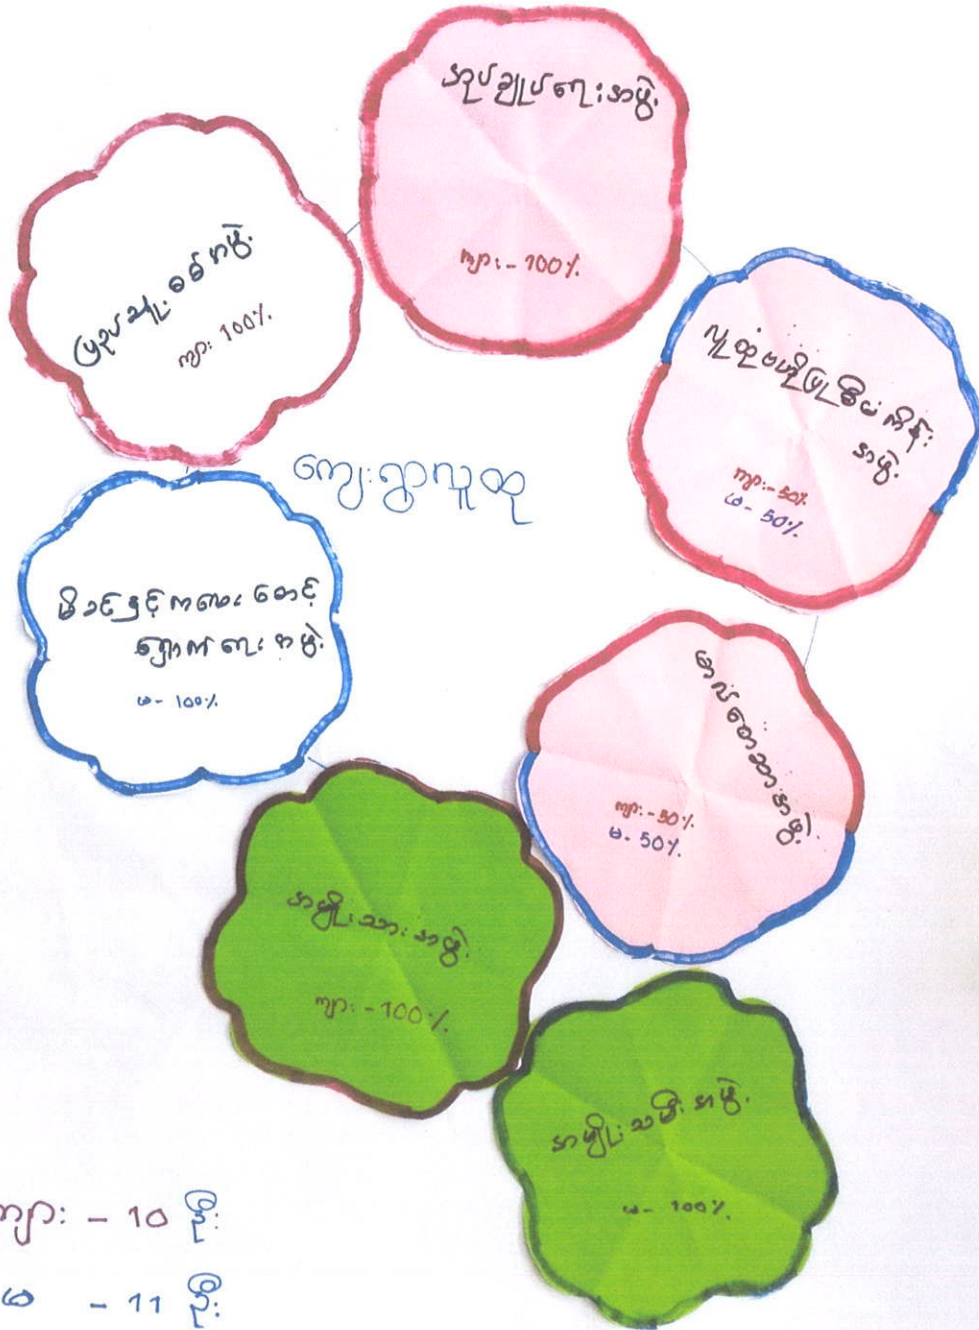 အုပ်ချုပ်ရေးအဖွဲ့
ကျား - 100%
ပြည်သူ့စစ်အဖွဲ့
ကျား 100%
လူထုဗဟိုပြုစီမံကိန်း
အဖွဲ့
ကျား - 50%
မ - 50%
ကျေးရွာလူထု
မိခင်နှင့်ကလေး စောင့်
ရှောက်ရေး အဖွဲ့
မ - 100%
ကျား - 50%
မ - 50%
အမျိုးသားအဖွဲ့
ကျား - 100%
အမျိုးသမီးအဖွဲ့
မ - 100%
ကျား - 10 ဦး
မ - 11 ဦး